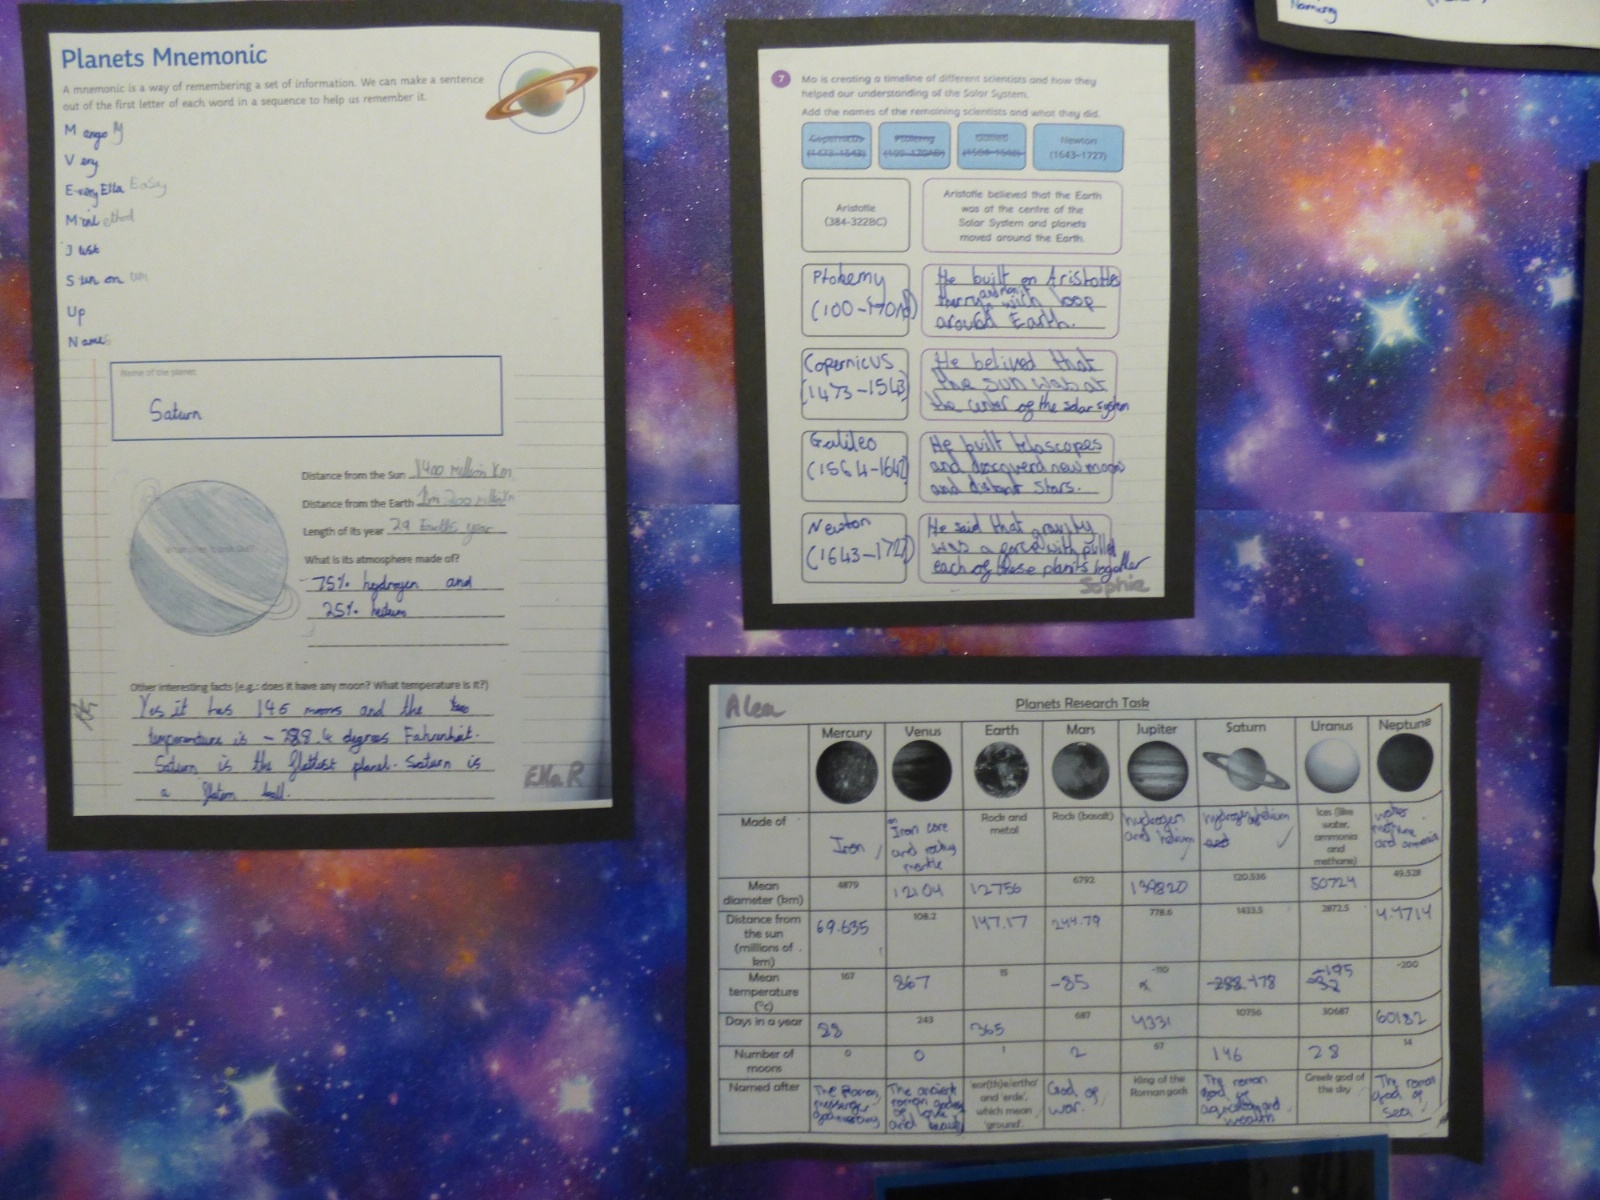 Planets Mnemonic
A mnemonic is a way of remembering a set of information. We can make a sentence
out of the first letter of each word in a sequence to help us remember it.
Mango M
Very
Every Ella Easy
Mine ethod
Just
Sun on um
Up
Names
Name of the planet
Saturn
Distance from the Sun 1400 million Km
Distance from the Earth
Length of its year 29 Earths year
What is its atmosphere made of?
75% hydrogen and
25% helium
Other interesting facts (e.g.: does it have any moon? What temperature is it?)
Yes it has 146 moons and the
temperature is -288.4 degrees Fahrenheit.
Saturn is the flattest planet. Saturn is
a ball.
Ella R
7 Mo is creating a timeline of different scientists and how they
helped our understanding of the Solar System.
Add the names of the remaining scientists and what they did.
Copernicus Ptolemy Galileo Newton
(1473-1543) (100-170AD) (1564-1642) (1643-1727)
Aristotle
(384-322BC)
Aristotle believed that the Earth
was at the centre of the
Solar System and planets
moved around the Earth.
Ptolemy
(100-170AD)
He built on Aristotles
with loop
around Earth.
Copernicus
(1473-1543)
He belived that
the sun was at
the center of the solar system
Galileo
(1564-1642)
He built teloscopes
and discoverd new moons
and distant stars.
Newton
(1643-1727)
He said that gravity
was a force with pulled
each of these planits together
Sophie
Alea
Planets Research Task
Mercury Venus Earth Mars Jupiter Saturn Uranus Neptune
Made of
Iron
Iron core
and rocky
mantle
Rock and
metal
Rock (basalt)
hydrogen
and helium
hydrogen helium
Ices (like
water,
ammonia
and
methane)
water
methane
and ammonia
Mean
diameter (km)
4879 12104 12756 6792 139820 120,536 50724 49,528
Distance from
the sun
(millions of
km)
69.635 108.2 147.17 244.79 778.6 1433.5 2872.5 4.4714
Mean
temperature
(°c)
167 867 15 -85 -110 -288 -178 -195 -200
Days in a year
88 243 365 687 4331 10756 30687 60182
Number of
moons
0 0 1 2 67 146 28 14
Named after
The Roman
messenger
god mercury
The ancient
roman goddess
of love
and beauty
'eor(th)e/ertha'
and 'erde',
which mean
'ground'.
God of
war.
King of the
Roman gods
The roman
god of
agriculture and
wealth
Greek god of
the sky
The roman
god of
sea
Naming